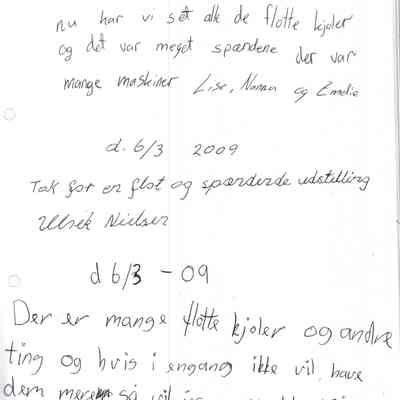 nu har vi set alle de flotte kjoler
og det var meget spændene der var
mange maskiner Lise, Nanna og Emelie
d. 6/3 2009
Tak for en flot og spændende udstilling
Ulrik Nielsen
d 6/3 - 09
Der er mange flotte kjoler og andre
ting og hvis i engang ikke vil have
dem mere så vil